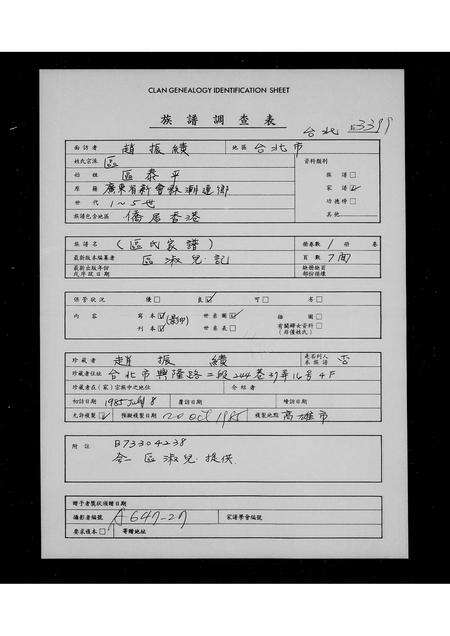 CLAN GENEALOGY IDENTIFICATION SHEET
族譜調查表
台北 5399
面訪者 趙振績 地區 台北市
姓氏宗派 區 資料類別
始祖 區泰平 族譜
原籍 廣東省新會縣潮連鄉 家譜 ✓
世代 1~5世 功德榜
族譜包含地區 僑居香港 其他
族譜名 (區氏家譜) 冊卷數 1 冊 卷
最新版本編纂者 區淑兒記 頁數 7面
最新出版年份或序跋日期 缺冊缺頁部份損壞
保管狀況 優 良 ✓ 可 劣
內容 寫本 ✓ (影印) 世系圖 ✓ 插圖
刊本 世系表 有關婦女資料(非僅姓氏)
珍藏者 趙振績 是否列入本族譜 否
珍藏者住址 台北市興隆路二段244巷37弄16号4F
珍藏者在(家)宗族中之地位 介紹者
初訪日期 1985 July 8 覆訪日期 續訪日期
允許複製 ✓ 預擬複製日期 20 oct 1985 複製地點 高雄市
附註 B73304238
區淑兒提供
贈予者獎狀頒贈日期
攝影者編號 A647-27 家譜學會編號
要求復本 寄贈地址